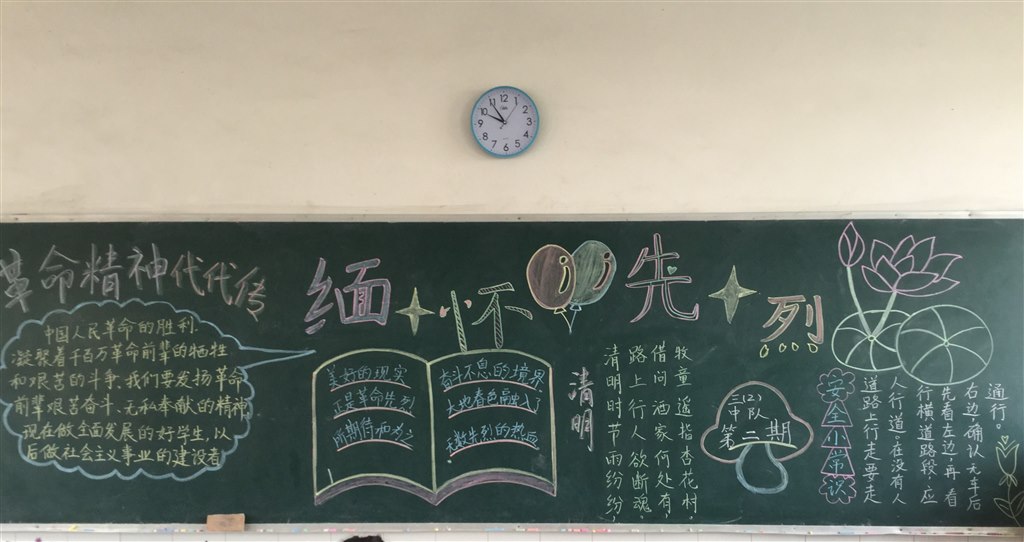 革命精神代代传
中国人民革命的胜利.
凝聚着千百万革命前辈的牺牲
和艰苦的斗争.我们要发扬革命
前辈艰苦奋斗、无私奉献的精神
现在做全面发展的好学生,以
后做社会主义事业的建设者
缅怀先列
美好的现实
正是革命先烈
所期待和为之
奋斗不息的境界
大地春色融入了
无数先烈的热血
清明
清明时节雨纷纷,
路上行人欲断魂.
借问酒家何处有,
牧童遥指杏花村.
三(2)
中队
第二期
安全小常识
道路上行走要走
人行道。在没有人
行横道路段,应
先看左边,再看
右边,确认无车后
通行。
12
1
2
3
4
5
6
7
8
9
10
11